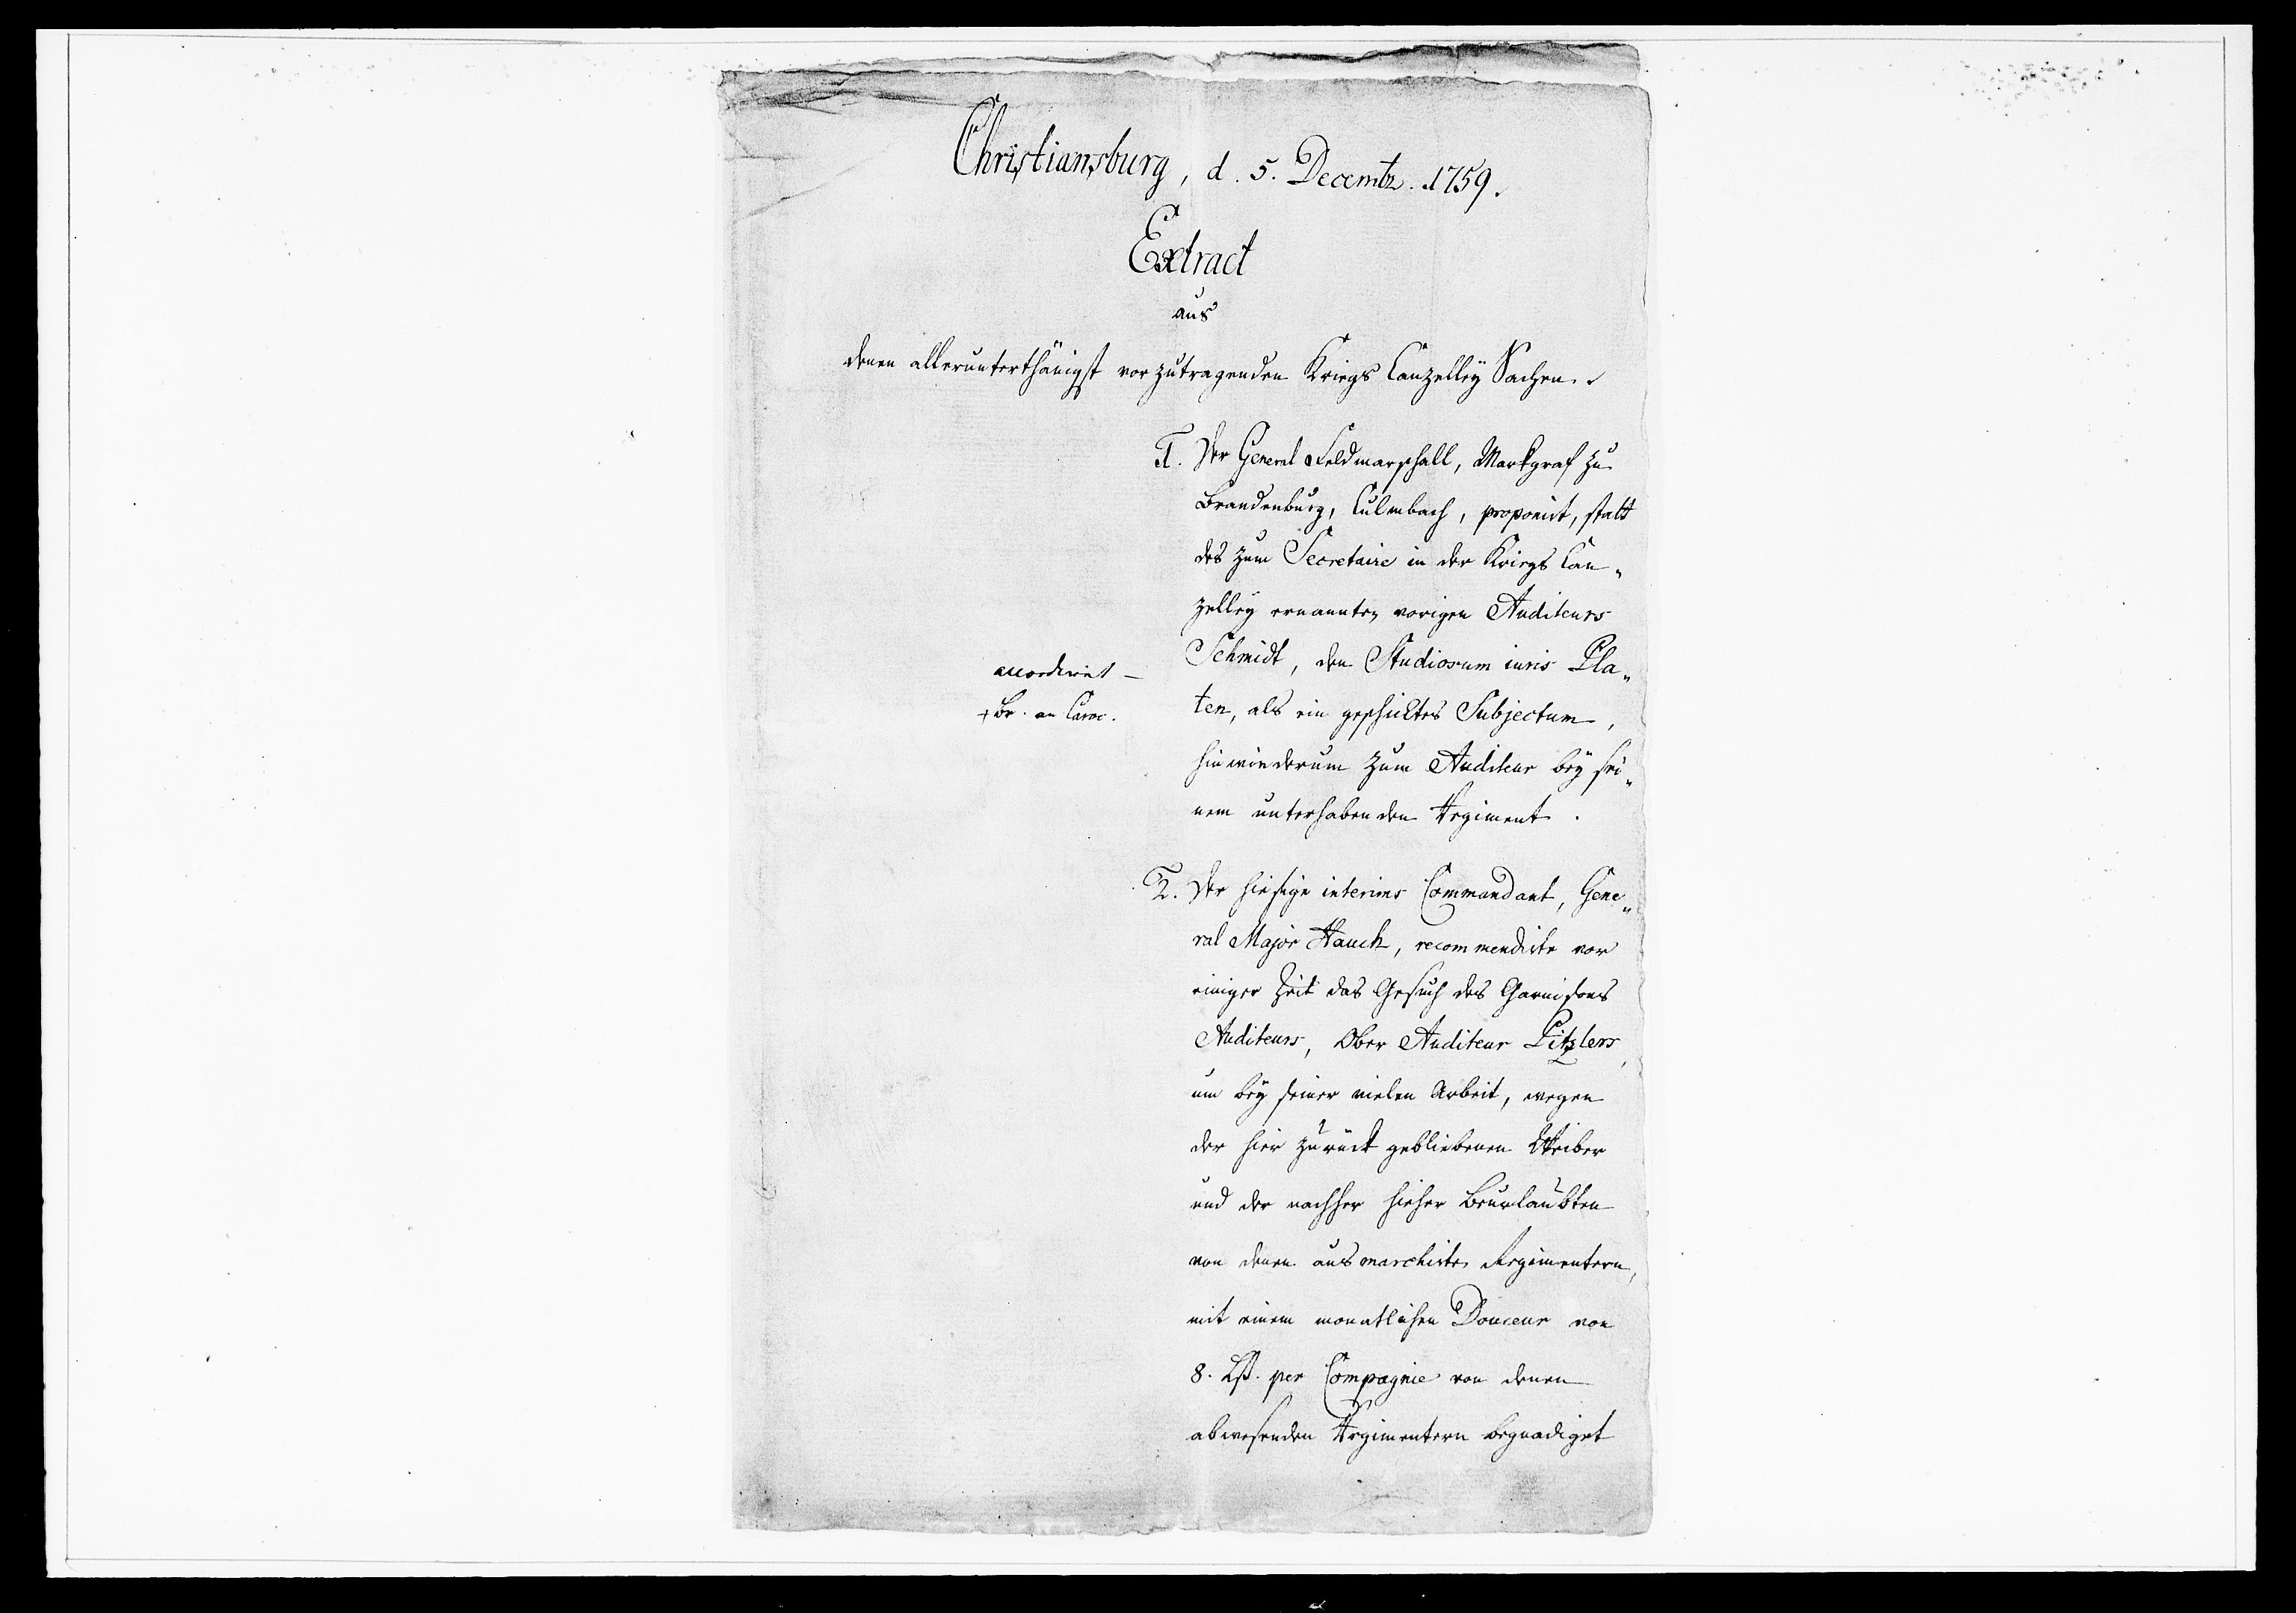 Christiansburg, d. 5. Decembr. 1759.
Extract
aus
denen allerunterthänigst vorzutragenden Kriegs Canzelley Sachen.
1. Der General Feldmarschall, Markgraf zu
Brandenburg, Culmbach, proponirt, statt
des zum Secretaire in der Kriegs Can„
zelley ernannten vorigen Auditeurs
Schmidt, den Studiosum iuris Pla„
accordirt —
ten, als ein geschicktes Subjectum,
+ Br. an
hinwiederum zum Auditeur bey sei„
nem unterhabenden Regiment.
2. Der hiesige interims Commandant, Gene„
ral Major Hauch, recommendirte vor
einiger Zeit das Gesuch des Garnisons
Auditeurs, Ober Auditeur Pitzlers,
um bey seiner vielen Arbeit, wegen
der hier zurück gebliebenen Weiber
und der nachher hieher Beurlaubten
von denen ausmarchirten Regimentern,
mit einem monatlichen Douceur von
8. Lß. per Compagnie von denen
abwesenden Regimentern begnadiget